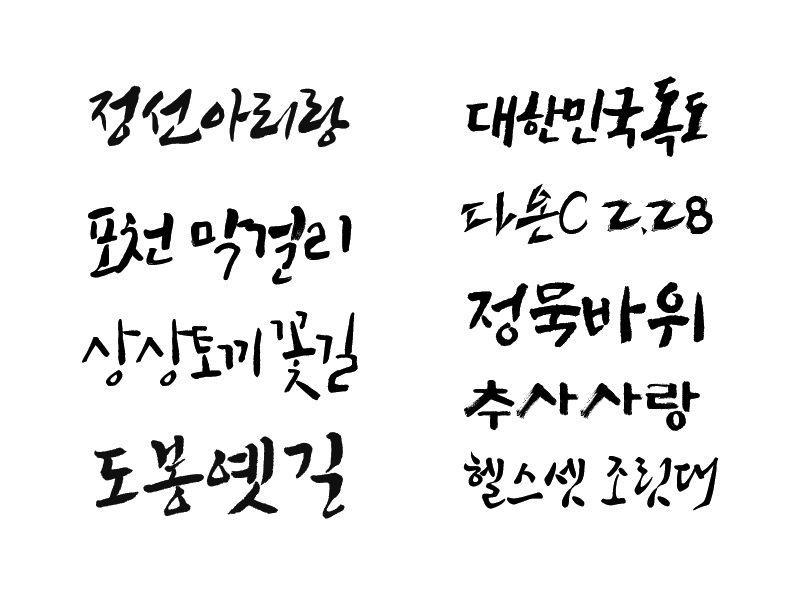 정선아리랑
포천 막걸리
상상토끼 꽃길
도봉옛길
대한민국독도
다온C 2.28
정묵바위
추사사랑
헬스셋 조릿대